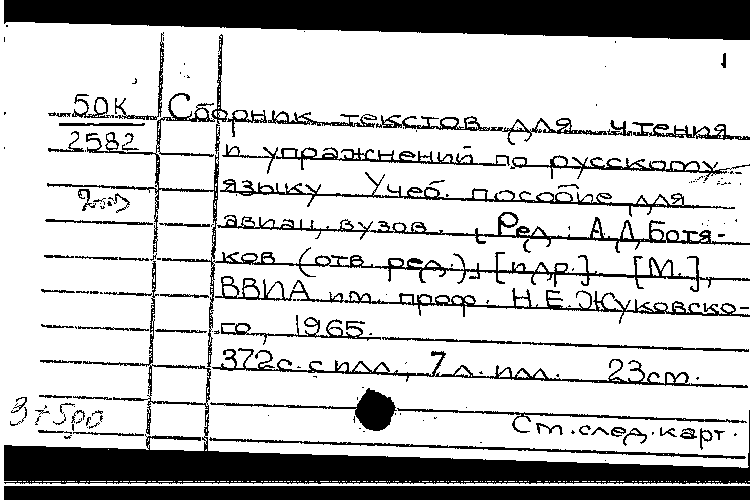 1
50К
2582
Сборник текстов для чтения
и упражнений по русскому
языку Учеб. пособие для
авиац. вузов. [Ред.: А.Д. Ботя-
ков (отв. ред.)] [и др.]. [М.],
ВВИА им. проф. Н.Е. Жуковско-
го, 1965.
372с. с илл.; 7 л. илл. 23см.
Ст. след. карт.